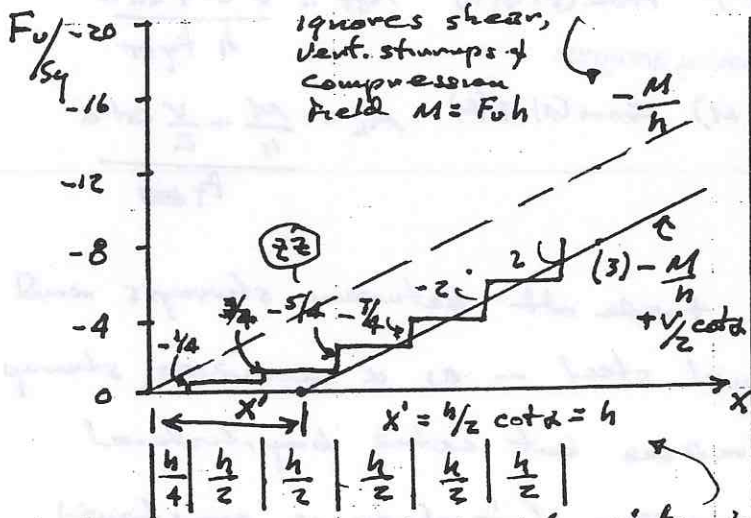 Fu/Sq
-20
ignores shear,
vert. stirrups &
compression
field M = Fu h
-16
-M/h
-12
zz
-8
-4
0
-1/4
3/4
-5/4
-7/4
-2
2
(3) - M/h
+ V/2 cotα
x
x'
x' = h/2 cotα = h
h/4 | h/2 | h/2 | h/2 | h/2 | h/2